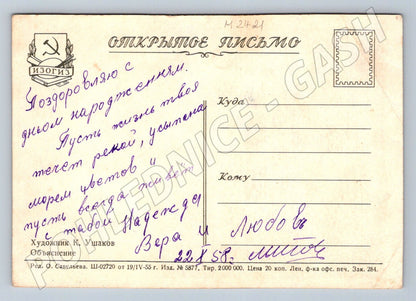 М2421
ИЗОГИЗ
ОТКРЫТОЕ ПИСЬМО
Поздоровляю с
дньом народженням.
Пусть жизнь твоя
течет рекой, усыпана
морем цветов и
пусть всегда живет
с табой Надежда
Вера и Любовь
22 X 58 г.
Куда
Кому
Художник К. Ушаков
Объяснение
Ред. О. Савельева. Ш-02720 от 19/IV-55 г. Изд. № 5877, Тир. 2000000. Цена 20 коп. Лен. ф-ка офс. печ. Зак. 284.
POHLEDNICE - GASH